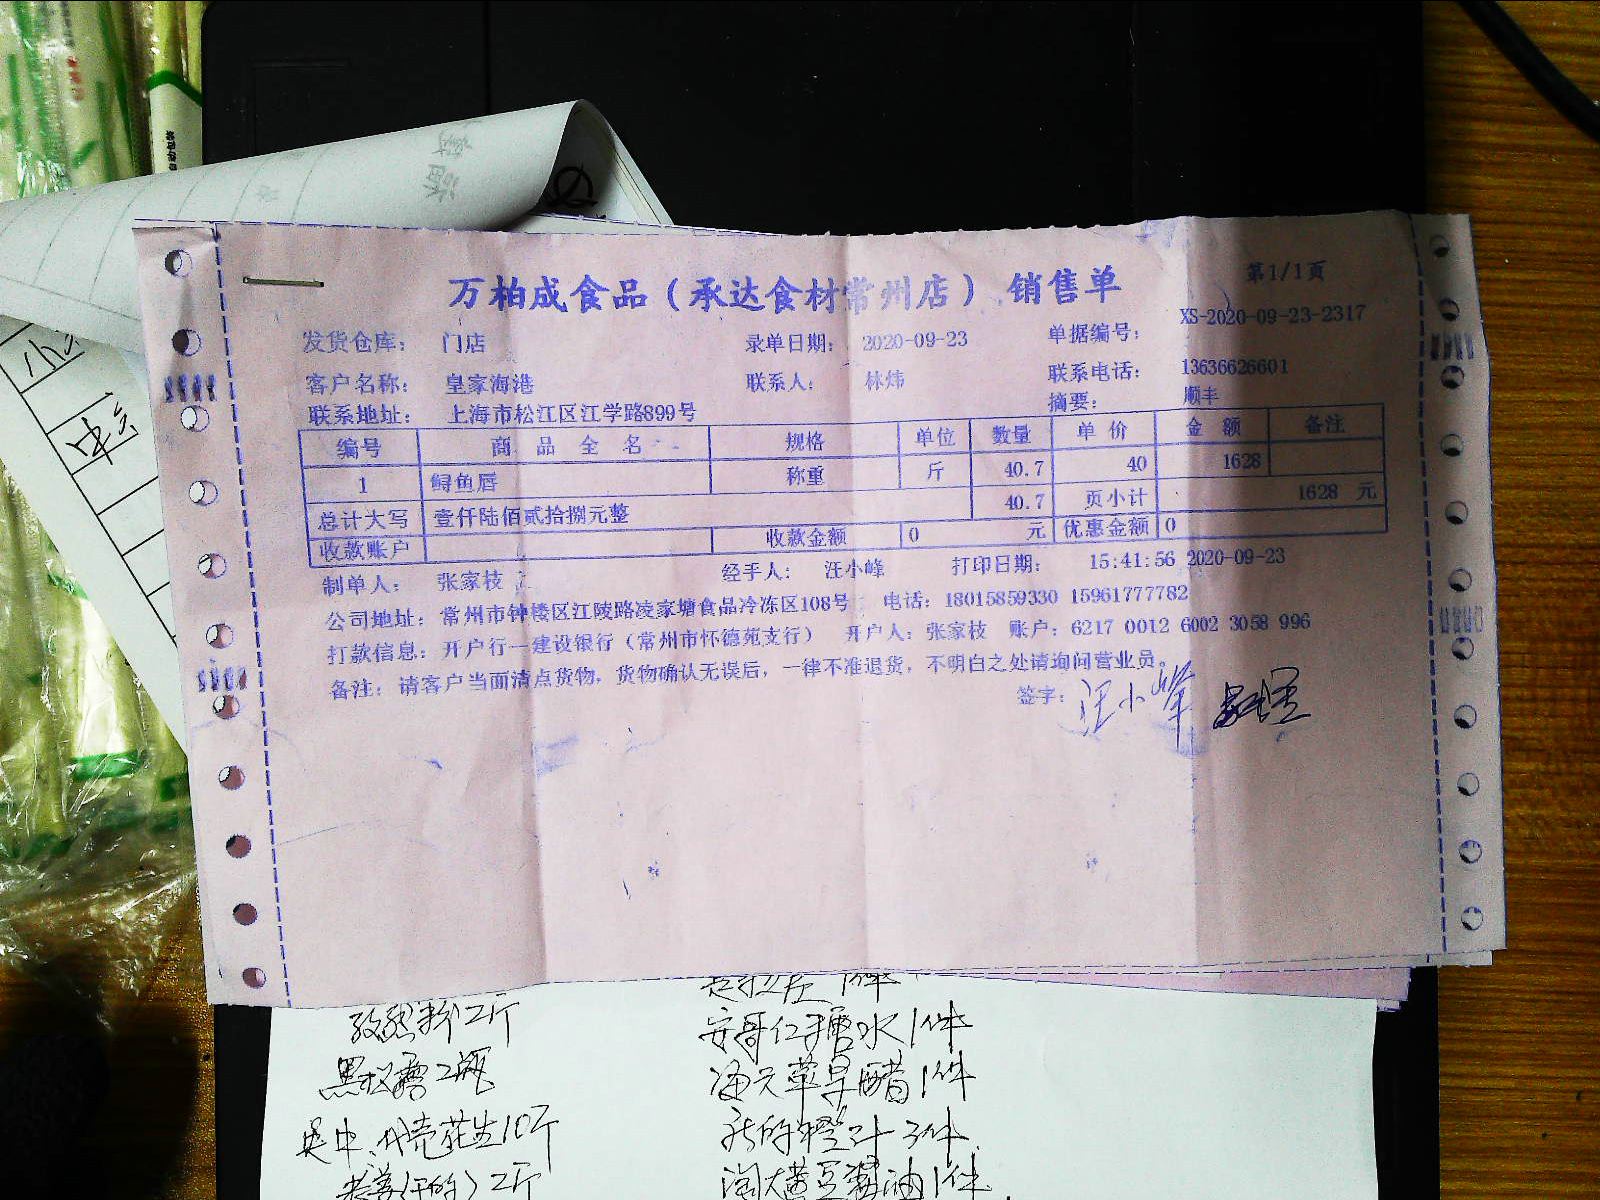 万柏成食品（承达食材常州店） 销售单
第1/1页
发货仓库： 门店 录单日期： 2020-09-23 单据编号： XS-2020-09-23-2317
客户名称： 皇家海港 联系人： 林炜 联系电话： 13636626601
联系地址： 上海市松江区江学路899号 摘要： 顺丰
编号 商品全名 规格 单位 数量 单价 金额 备注
1 鲟鱼唇 称重 斤 40.7 40 1628
总计大写 壹仟陆佰贰拾捌元整 40.7 页小计 1628 元
收款账户 收款金额 0 元 优惠金额 0
制单人： 张家枝 经手人： 汪小峰 打印日期： 15:41:56 2020-09-23
公司地址：常州市钟楼区江陵路凌家塘食品冷冻区108号 电话：18015859330 15961777782
打款信息：开户行—建设银行（常州市怀德苑支行） 开户人：张家枝 账户：6217 0012 6002 3058 996
备注：请客户当面清点货物，货物确认无误后，一律不准退货，不明白之处请询问营业员。
签字：汪小峰
粉2斤
黑松露2瓶
花生10斤
2斤
1件
糖水1件
醋1件
橙汁3件
淘大黄豆酱油1件